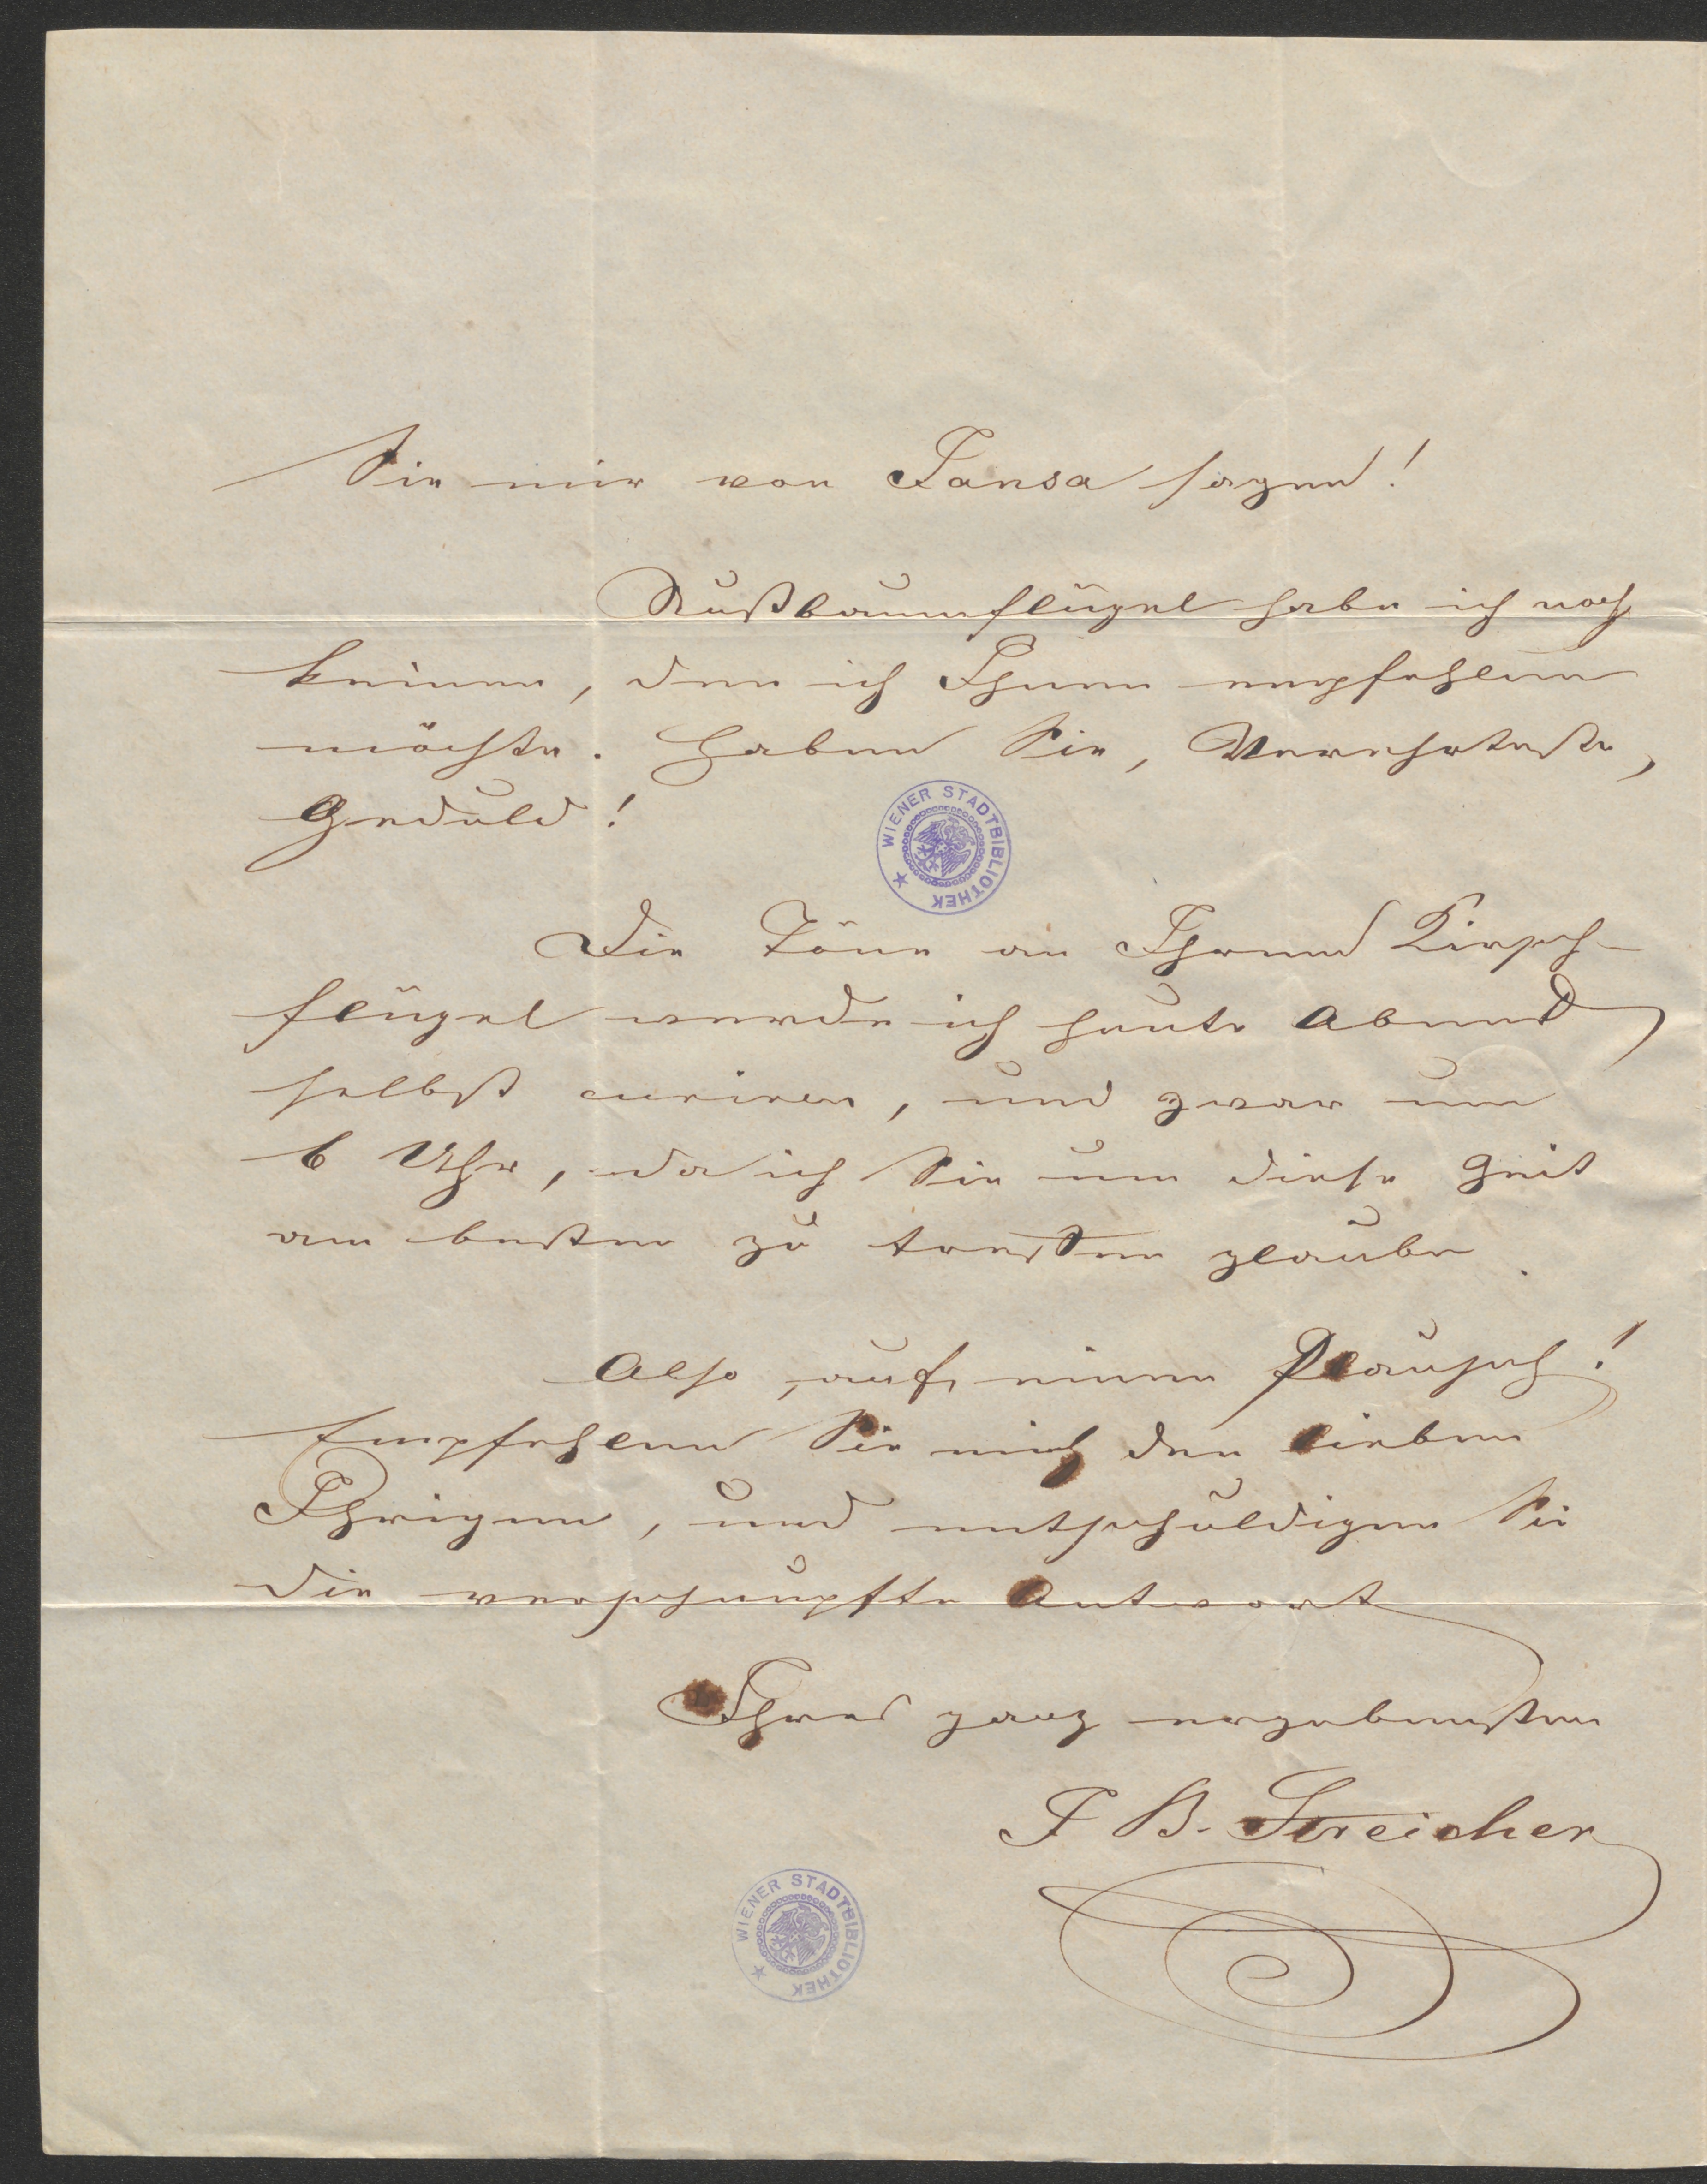 Sie mir von Jansa sagen!
Nußbaumflügel habe ich noch
keinen, den ich Ihnen empfehlen
möchte. Haben Sie, Verehrteste,
Geduld!
WIENER STADTBIBLIOTHEK
Die Töne am Ihrem Kirsch-
flügel werde ich heute Abend
selbst curiren, und zwar um
6 Uhr, da ich Sie um diese Zeit
am besten zu treffen glaube.
Also, auf einen Plausch!
Empfehlen Sie mich den lieben
Ihrigen, und entschuldigen Sie
die verschnupfte Antwort
Ihres ganz ergebensten
J B. Streicher
WIENER STADTBIBLIOTHEK